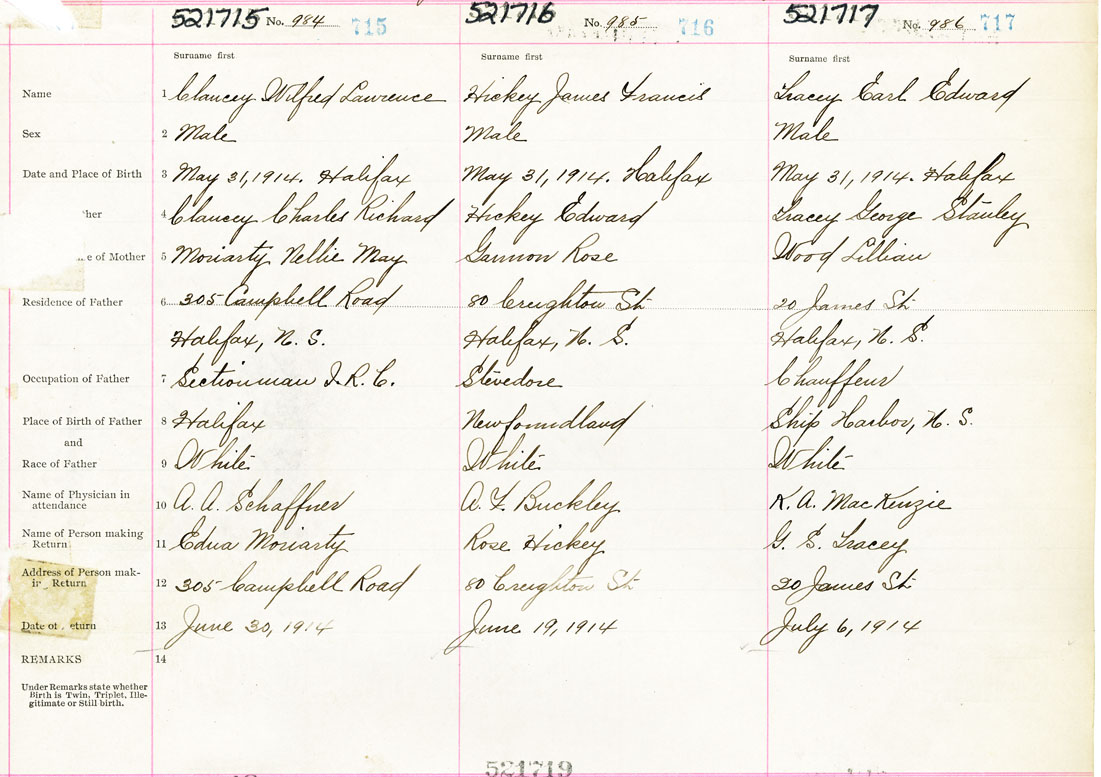 521715 No. 984 715 521716 No. 985 716 521717 No. 986 717
Surname first Surname first Surname first
Name 1 Clancey Wilfred Lawrence Hickey James Francis Tracey Earl Edward
Sex 2 Male Male Male
Date and Place of Birth 3 May 31, 1914. Halifax May 31, 1914. Halifax May 31, 1914. Halifax
ther 4 Clancey Charles Richard Hickey Edward Tracey George Stanley
e of Mother 5 Moriarty Nellie May Gannon Rose Wood Lillian
Residence of Father 6 305 Campbell Road 80 Creighton St. 20 James St.
Halifax, N. S. Halifax, N. S. Halifax, N. S.
Occupation of Father 7 Sectionman I. R. C. Stevedore Chauffeur
Place of Birth of Father 8 Halifax Newfoundland Ship Harbor, N. S.
and
Race of Father 9 White White White
Name of Physician in
attendance 10 A. A. Schaffner A. F. Buckley K. A. MacKenzie
Name of Person making
Return 11 Edna Moriarty Rose Hickey G. S. Tracey
Address of Person mak-
ir Return 12 305 Campbell Road 80 Creighton St. 20 James St.
Date of eturn 13 June 30, 1914 June 19, 1914 July 6, 1914
REMARKS 14
Under Remarks state whether
Birth is Twin, Triplet, Ille-
gitimate or Still birth.
521719